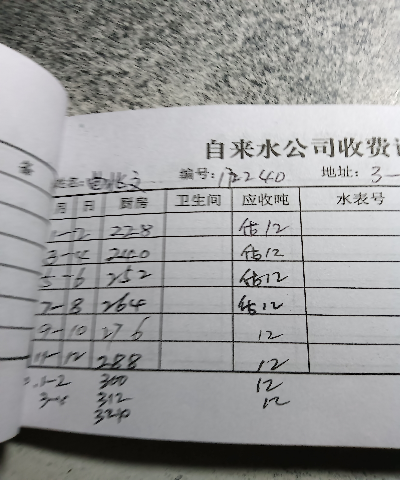 自来水公司收费
姓名: 编号: 12240 地址: 3-
月 日 厨房 卫生间 应收吨 水表号
1-2 228 估12
3-4 240 估12
5-6 252 估12
7-8 264 估12
9-10 276 12
11-12 288 12
1-2 300 12
3-4 312 12
3240